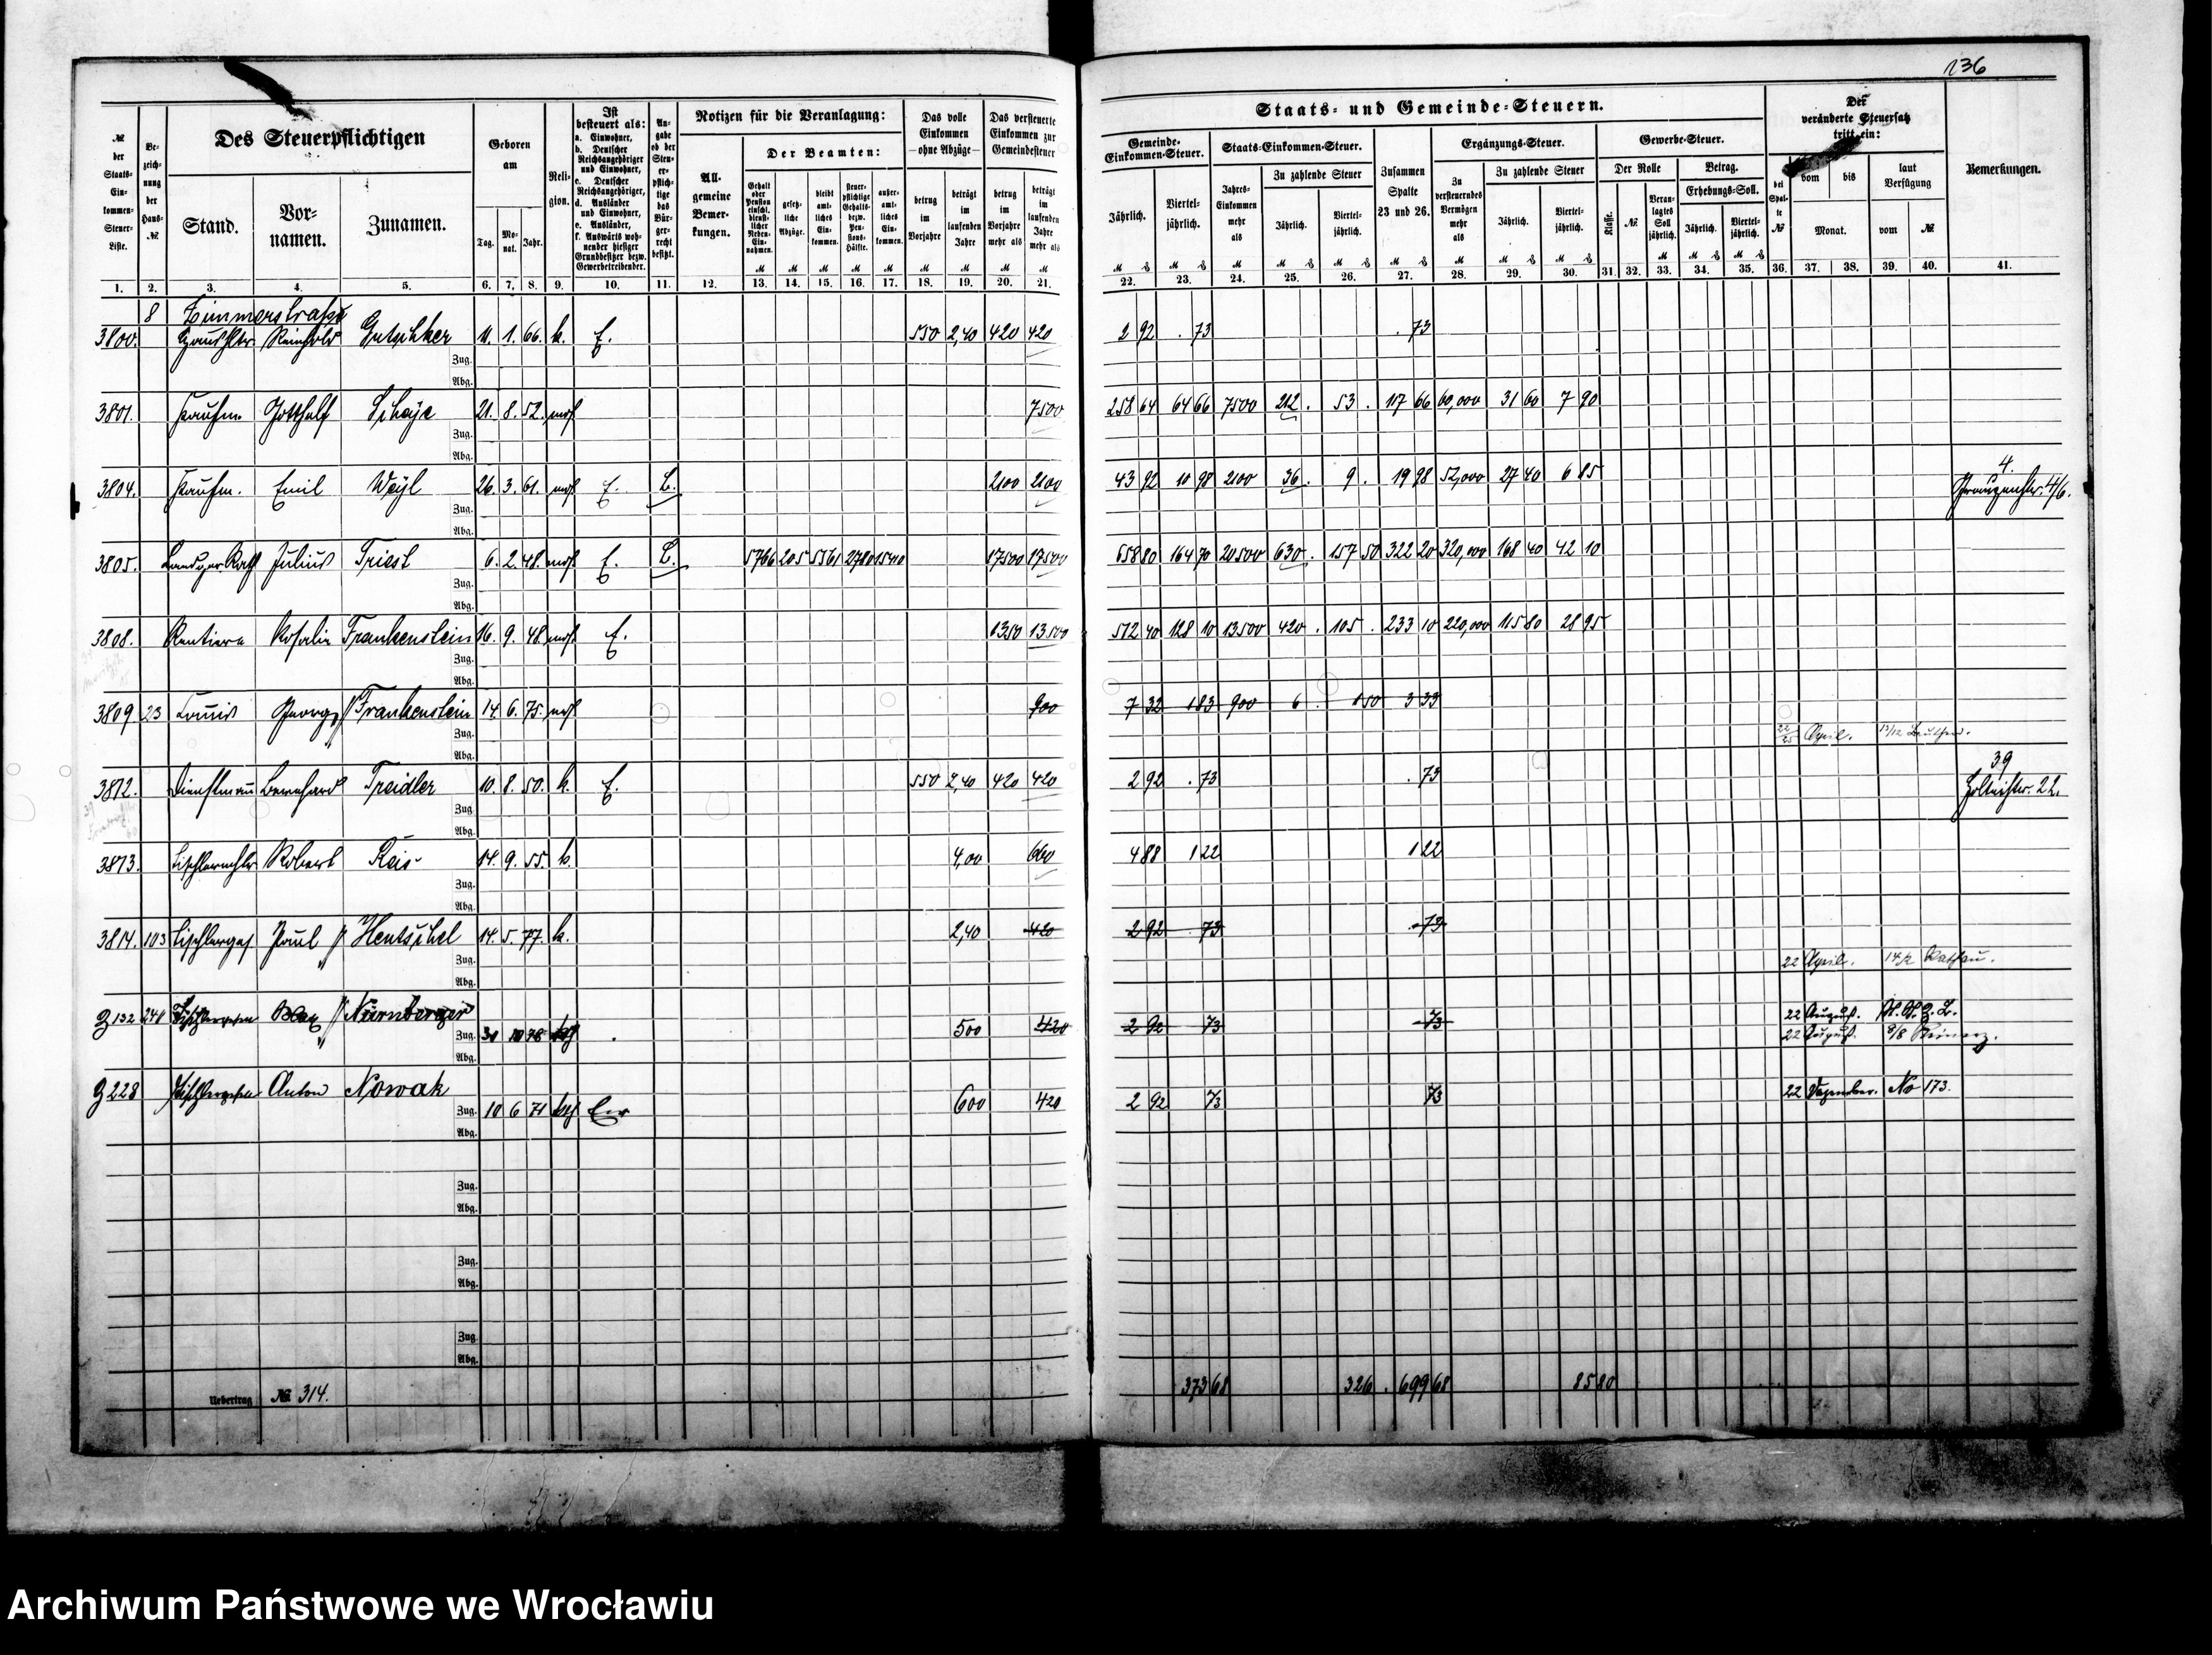 236
№ der Staats-Einkommen-Steuer-Liste.
Bezeichnung der Haus-№
Des Steuerpflichtigen
Stand.
Vornamen.
Zunamen.
Geboren am
Tag. Monat. Jahr.
Religion.
Ist besteuert als: a. Einwohner, b. Deutscher Reichsangehöriger und Einwohner, c. Deutscher Reichsangehöriger, d. Ausländer und Einwohner, e. Ausländer, f. Auswärts wohnender hiesiger Grundbesitzer bezw. Gewerbetreibender.
Angabe ob der Steuerpflichtige das Bürgerrecht besitzt.
Notizen für die Veranlagung:
Allgemeine Bemerkungen.
Der Beamten:
Gehalt oder Pension einschl. dienstlicher Neben-Einnahmen.
gesetzliche Abzüge.
bleibt amtliches Einkommen.
steuerpflichtige Gehalts- bezw. Pensions-Hälfte.
außeramtliches Einkommen.
Das volle Einkommen —ohne Abzüge—
betrug im Vorjahre
beträgt im laufenden Jahre
Das versteuerte Einkommen zur Gemeindesteuer
betrug im Vorjahre mehr als
beträgt im laufenden Jahre mehr als
Staats- und Gemeinde-Steuern.
Gemeinde-Einkommen-Steuer.
Jährlich. Vierteljährlich.
Staats-Einkommen-Steuer.
Jahres-Einkommen mehr als
Zu zahlende Steuer
Jährlich. Vierteljährlich.
Zusammen Spalte 23 und 26.
Ergänzungs-Steuer.
Zu versteuerndes Vermögen mehr als
Zu zahlende Steuer
Jährlich. Vierteljährlich.
Gewerbe-Steuer.
Der Rolle
Klasse. №
Veranlagtes Soll jährlich.
Betrag. Erhebungs-Soll.
Jährlich. Vierteljährlich.
Der veränderte Steuersatz tritt ein:
bei Spalte №
vom bis
Monat.
laut Verfügung
vom №
Bemerkungen.
1. 2. 3. 4. 5. 6. 7. 8. 9. 10. 11. 12. 13. 14. 15. 16. 17. 18. 19. 20. 21. 22. 23. 24. 25. 26. 27. 28. 29. 30. 31. 32. 33. 34. 35. 36. 37. 38. 39. 40. 41.
8 Zimmerstraße
3800. Haushltr. Reinhold Gutschker 11. 1. 66. k. E. 550 2,40 420 420 2 92 . 73 . 73
Zug.
Abg.
3801. Kaufm. Gotthelf Schaje 21. 8. 52. mos 7500 258 64 64 66 7500 212 . 53 . 117 66 60,000 31 60 7 90
Zug.
Abg.
3804. Kaufm. Emil Weyl 26. 3. 61. mos E. B. 2100 2100 43 92 10 98 2100 36 . 9 . 19 98 52,000 27 40 6 85 4.
Zug.
Abg.
3805. Landger. Rath Julius Triest 6. 2. 48. mos E. B. 5766 205 5561 2780 15410 17500 17500 658 80 164 70 20500 630 . 157 50 322 20 320,000 168 40 42 10
Zug.
Abg.
3808. Rentiere Rosalie Frankenstein 16. 9. 48. mos E. 1350 13500 512 40 128 10 13500 420 . 105 . 233 10 220,000 115 80 28 95
Zug.
Abg.
3809 23 Commis Georg Frankenstein 14. 6. 75. mos 900 7 32 1 83 900 6 . 1 50 3 33
Zug. 22/25 April. 13/12 Beuthen.
Abg.
3812. Dienstmann Bernhard Treidler 10. 8. 50. k. E. 550 2,40 420 420 2 92 . 73 . 73 39 Holteistr. 22.
Zug.
Abg.
3813. Tischlermstr. Robert Reis 14. 9. 55. k. 4,00 660 4 88 1 22 1 22
Zug.
Abg.
3814. 103 Tischlerges Paul Hentschel 14. 5. 77. k. 2,40 420 2 92 73 73
Zug. 22 April. 14/2
Abg.
Z 132 241 Tischlergesellen Max Nürnberger 22 August.
Zug. 30 10 78 500 420 2 92 73 73 22 August. 8/8 Reinerz.
Abg.
Z 228 Tischlergesellen Anton Nowak 22 Dezember. No 173.
Zug. 10 6 71 kath Einw 600 420 2 92 73 73
Abg.
Zug.
Abg.
Zug.
Abg.
Zug.
Abg.
Uebertrag № 314. 373 68 326 . 699 68 85 80
Archiwum Państwowe we Wrocławiu